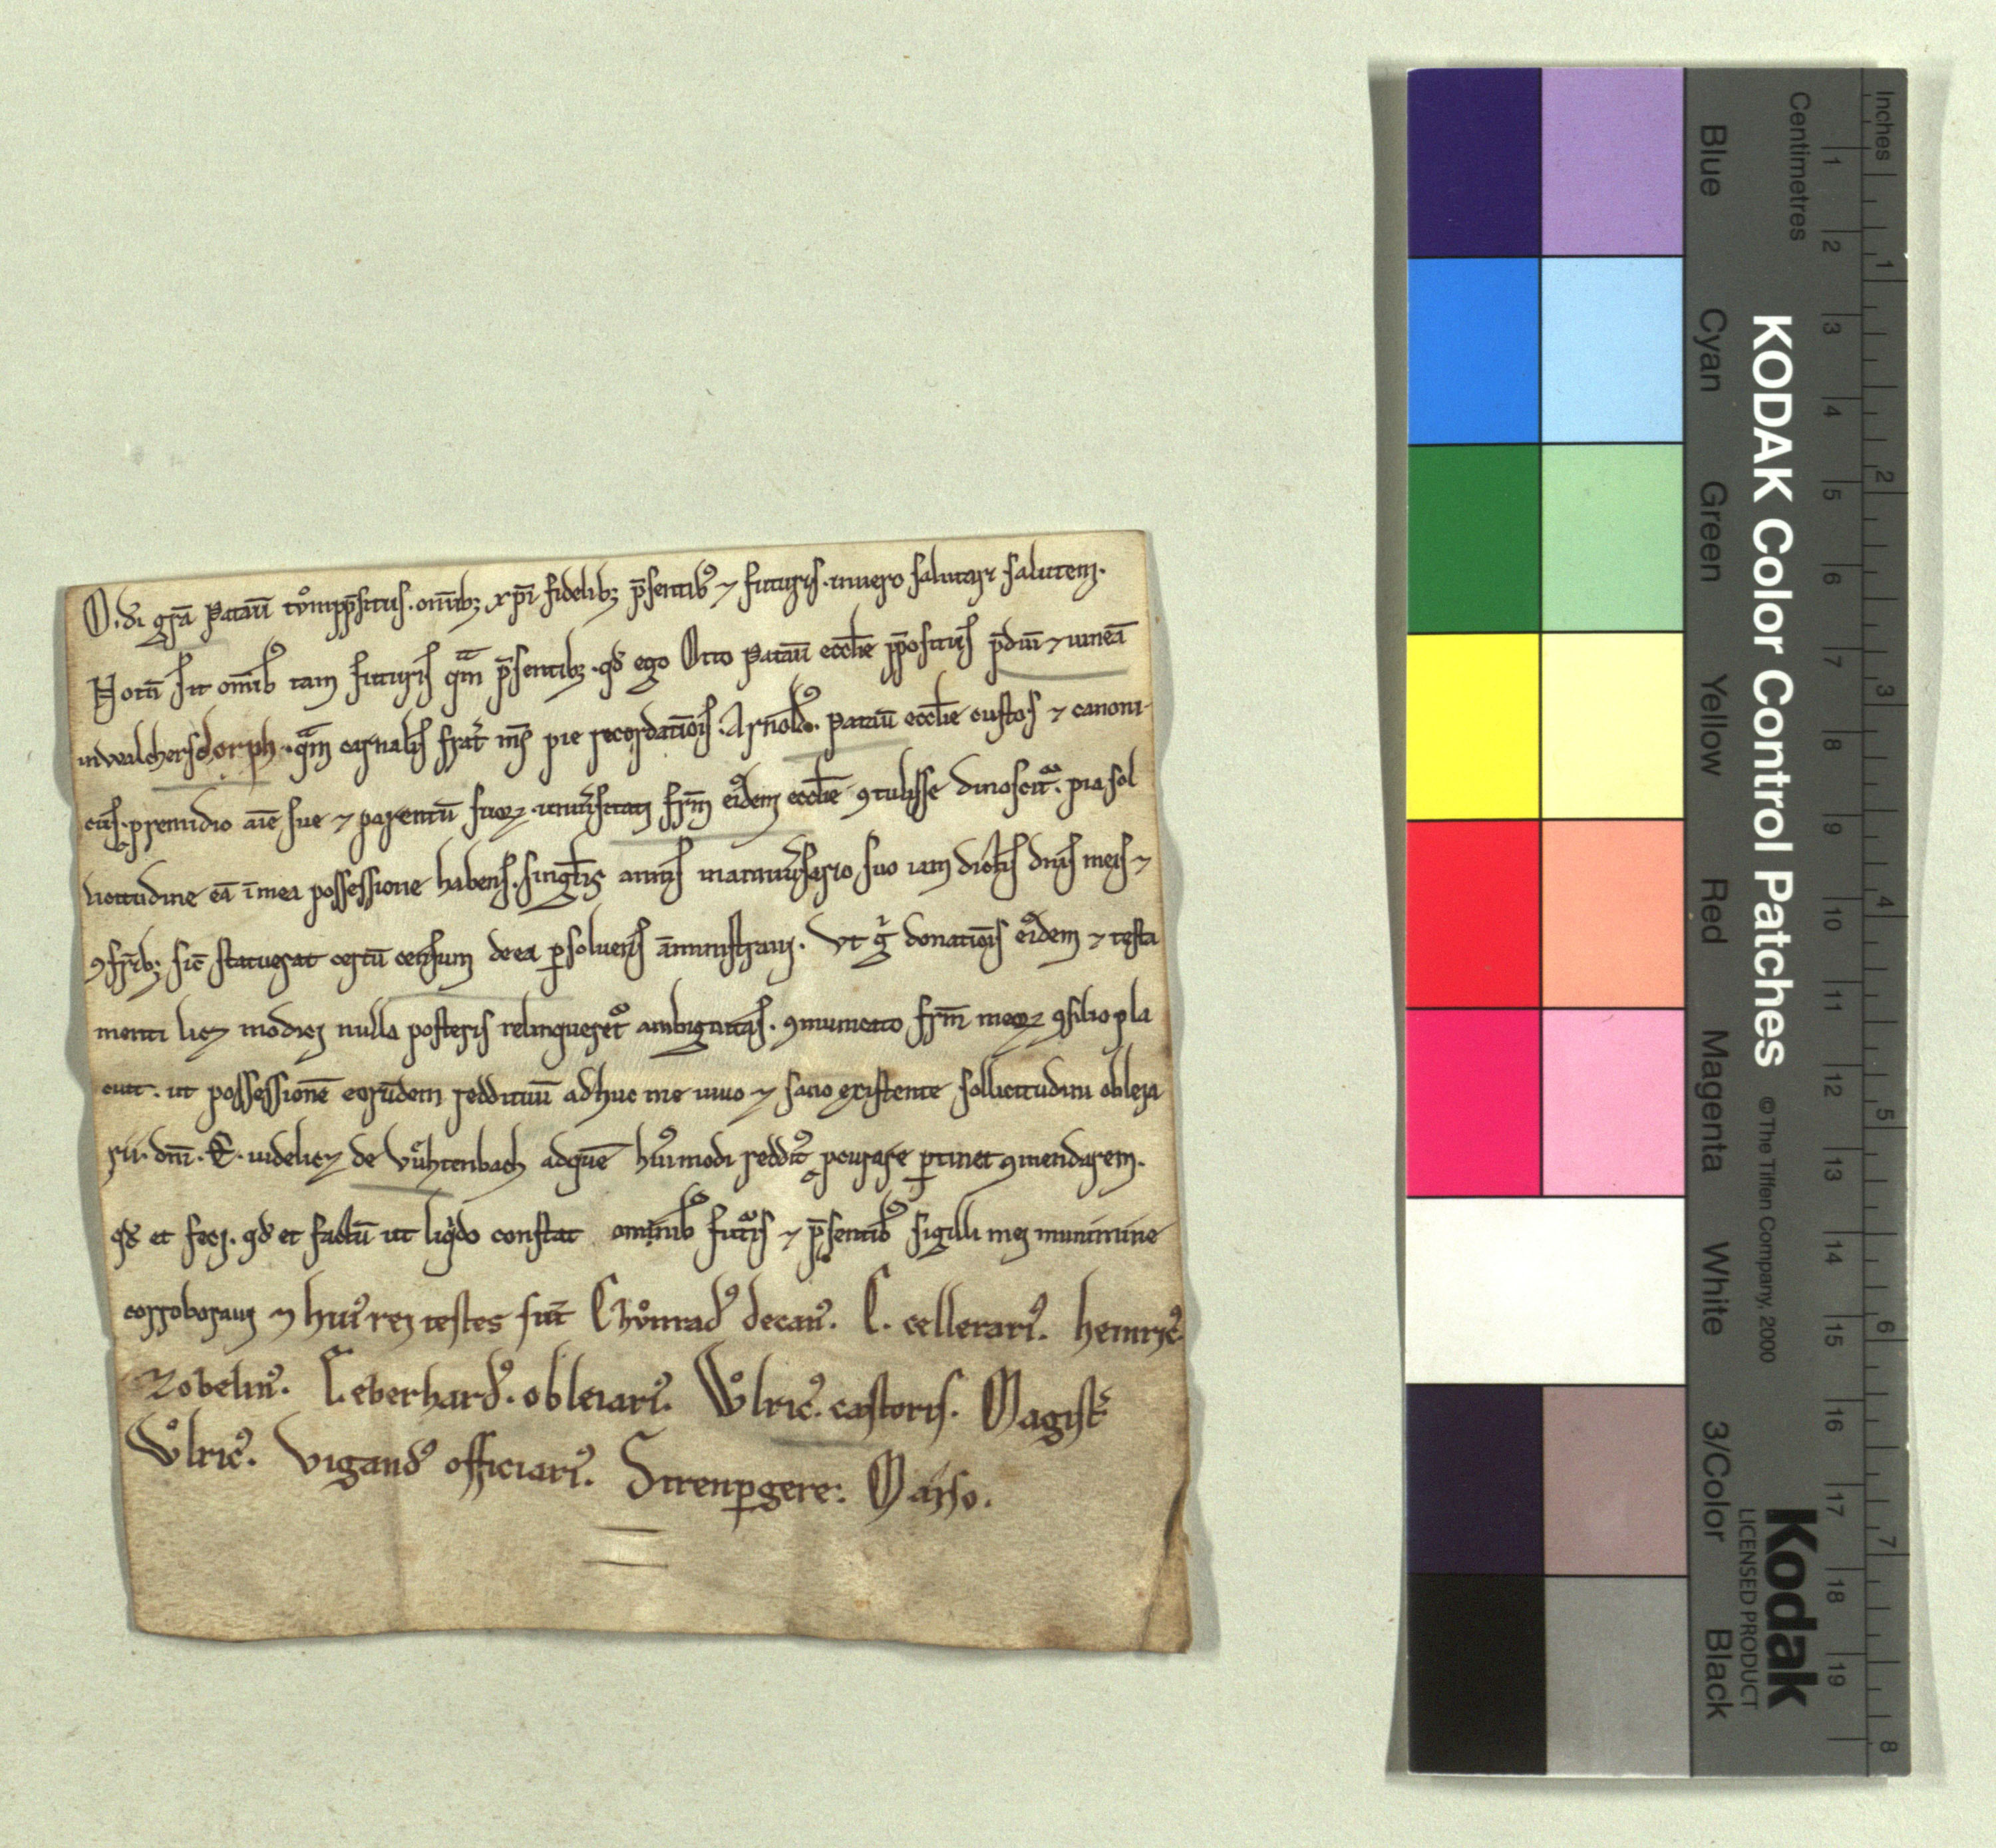 O. di gr̄a Patauī tvͦmpp̄situs. om̄ibꝫ xp̄i fidelibꝫ p̄sentibꝰ ⁊ futuris. in uero salutari salutem.
Notū sit om̄ibꝰ tam futuris qām p̄sentibꝫ. qđ ego Otto Patauī eccl̄ie pp̄ositus p̄diū ⁊ uineā
in walchersdorph. qām carnalis frat̄ ms̄ pie recordatiōis. Arnoldꝰ. Patauī eccl̄ie custos ⁊ canoni-
cus. p remidio aīe sue ⁊ parentū suoꝝ. uniūsitati fr̄m eiꝰdem eccl̄ie ꝯtulisse dinoscit᷑. pia sol
licitudine eā ī mea possessione habens. singl̄is annis in anniūsario suo iam dictis dn̄is meis ⁊
ꝯfr̄ibꝫ sic̄ statuerat certū censum de ea ꝑsoluens āministraui. Ut gͥ donatiōis eiꝰdem ⁊ testa
menti licꝫ modici nulla posteris relinqueret᷑ ambiguitas. ꝯmunicato fr̄m meoꝝ ꝯsilio pla
cuit. ut possessionē eorūdem reddituū adhuc me uiuo ⁊ sano existente sollicitudini obleia
rii. dn̄i. E. uidelicꝫ de Vuͦhtenbach ad quē huiꝰmodi redditꝰ ꝓcurare ꝑtinet ꝯmendarem.
qđ et feci. qđ et factū ut liqͥdo constat omnibꝰ futuris ⁊ p̄sentibꝰ sigilli mei munimine
corroboraui ⁊ huiꝰ rei testes sūt Chvͦnradꝰ decanꝰ. C. cellerariꝰ. heinricꝰ
Zobelinꝰ. C. eberhardꝰ. obleiariꝰ. Wͦlricꝰ. castoris. Magist̄
Wͦlricꝰ. Vigandꝰ officiariꝰ. Sirenꝑgere. Marso.
Inches
Centimetres
1 2 3 4 5 6 7 8 9 10 11 12 13 14 15 16 17 18 19
1 2 3 4 5 6 7 8
KODAK Color Control Patches © The Tiffen Company, 2000
Kodak
LICENSED PRODUCT
Blue Cyan Green Yellow Red Magenta White 3/Color Black